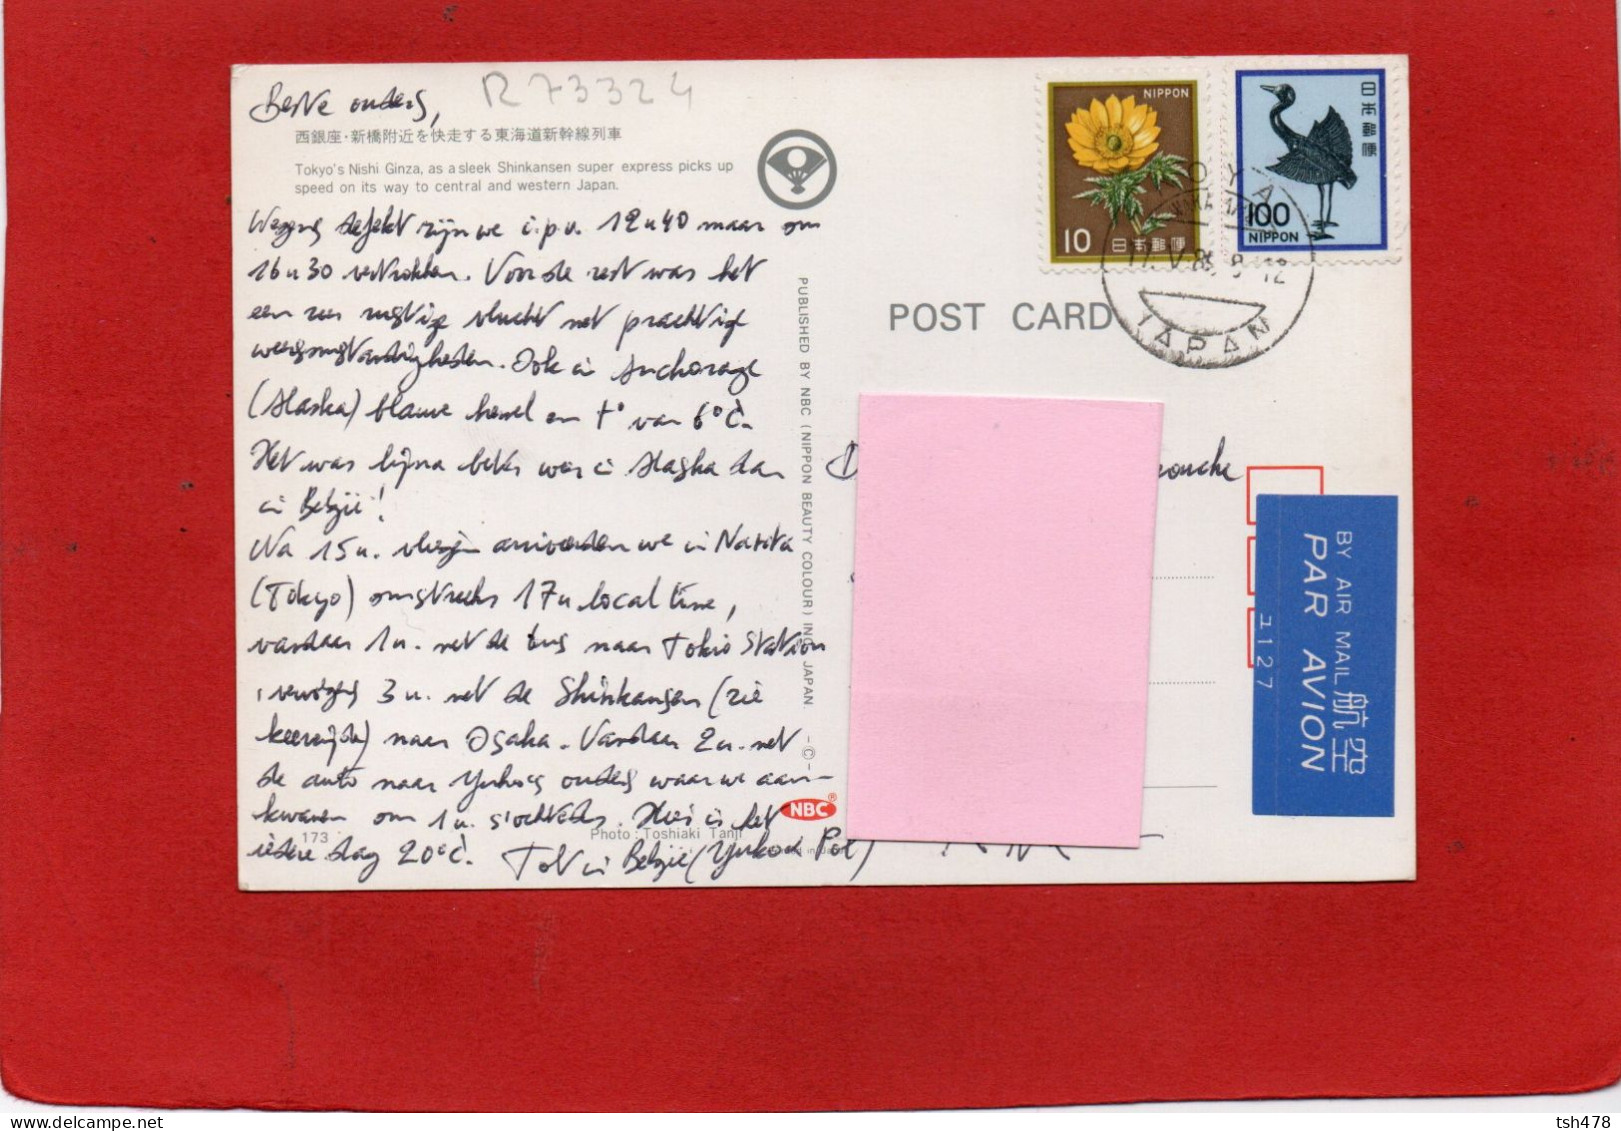 Beste ouders,
R73324
西銀座・新橋附近を快走する東海道新幹線列車
Tokyo's Nishi Ginza, as a sleek Shinkansen super express picks up
speed on its way to central and western Japan.
Wegens defekt zijn we i.p.v. 12u40 maar om
16u30 vertrokken. Voor de rest was het
een zeer rustige vlucht met prachtige
weersomstandigheden. Ook in Anchorage
(Alaska) blauwe hemel en t° van 6°C.
Het was bijna beter weer in Alaska dan
in België!
Na 15u. vliegen arriveerden we in Narita
(Tokyo) omstreeks 17u local time,
vandaar 1u. met de bus naar Tokio Station
, vervolgens 3u. met de Shinkansen (zie
keerzijde) naar Osaka. Vandaar 2u. met
de auto naar Yuko's ouders waar we aan-
kwamen om 1u. s'ochtends. Hier is het
iedere dag 20°C. Tot in België (Yuko
173
Photo: Toshiaki Tanji
PUBLISHED BY NBC (NIPPON BEAUTY COLOUR) INC. JAPAN. -©-
NBC®
POST CARD
NIPPON
10 日本郵便
日本郵便
100
NIPPON
OYA
17. V 8
12
JAPAN
BY AIR MAIL 航空
PAR AVION
1127
tsh478